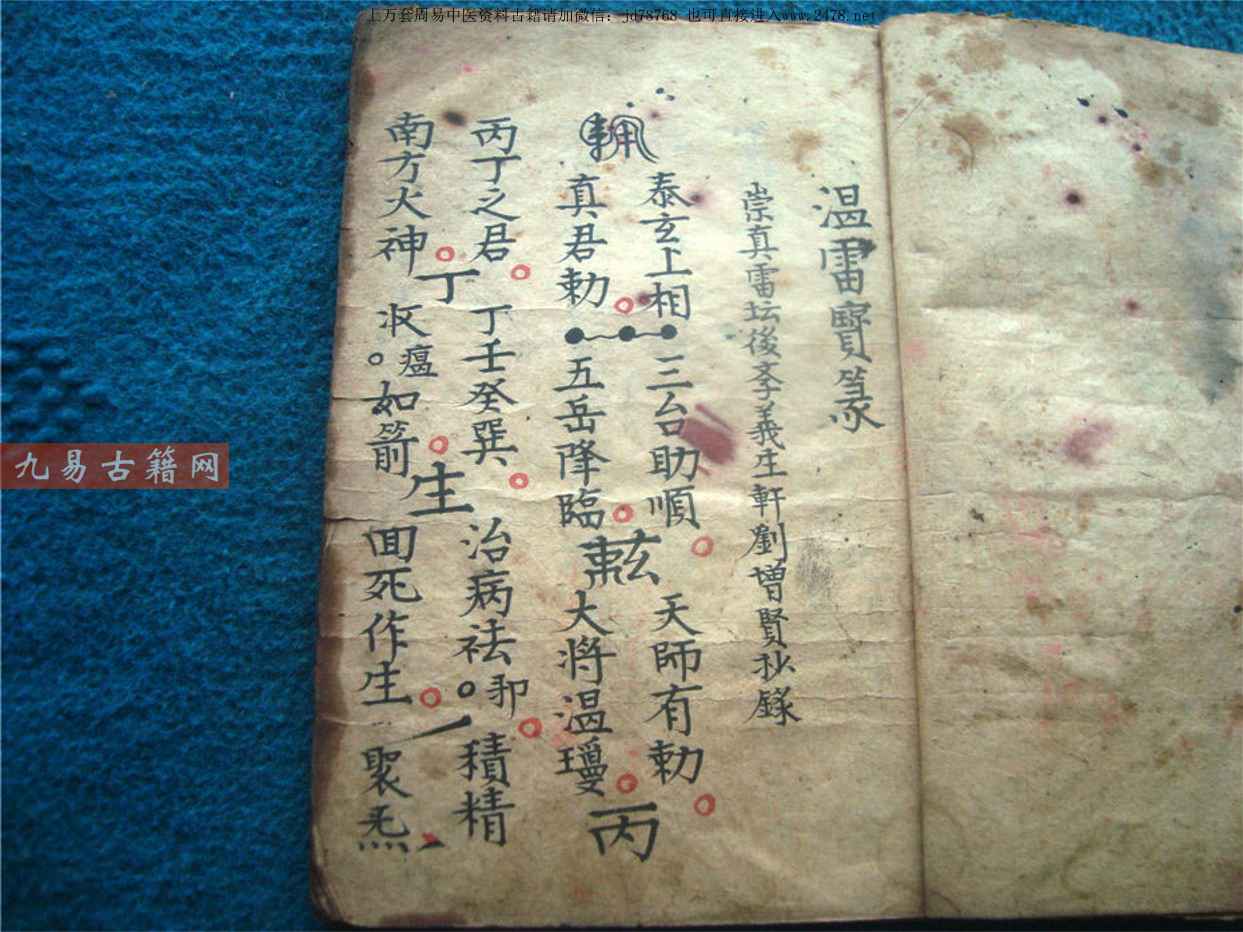 上万套周易中医资料古籍请加微信：jd78768 也可直接进入www.2478.net
九易古籍网
温雷寶篆
崇真雷坛後孝義生軒劉增賢抄錄
泰玄上相 三台助順 天師有勅
真君勅 五岳降臨 大將温瓊
丙
丙丁之君 丁壬癸巽 治病祛卭 積精
丁 生
南方火神 收瘟如箭 囬死作生 聚炁